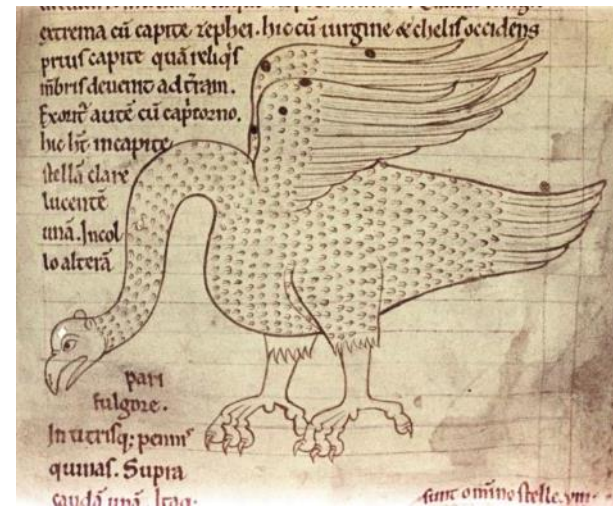 extrema cū capite zephei. hic cū uirgine & chelis occidens
prius capite quā reliq's
mbris deueint ad trām.
Exorit' autē cū cap'corno.
hic ht' in capite
stellā clare
lucentē
unā. Incol
lo alterā
pari
fulgore.
In utrisq; pennis
quinas. Supra
caudā unā. Itaq;
sunt omīno stelle .viii.